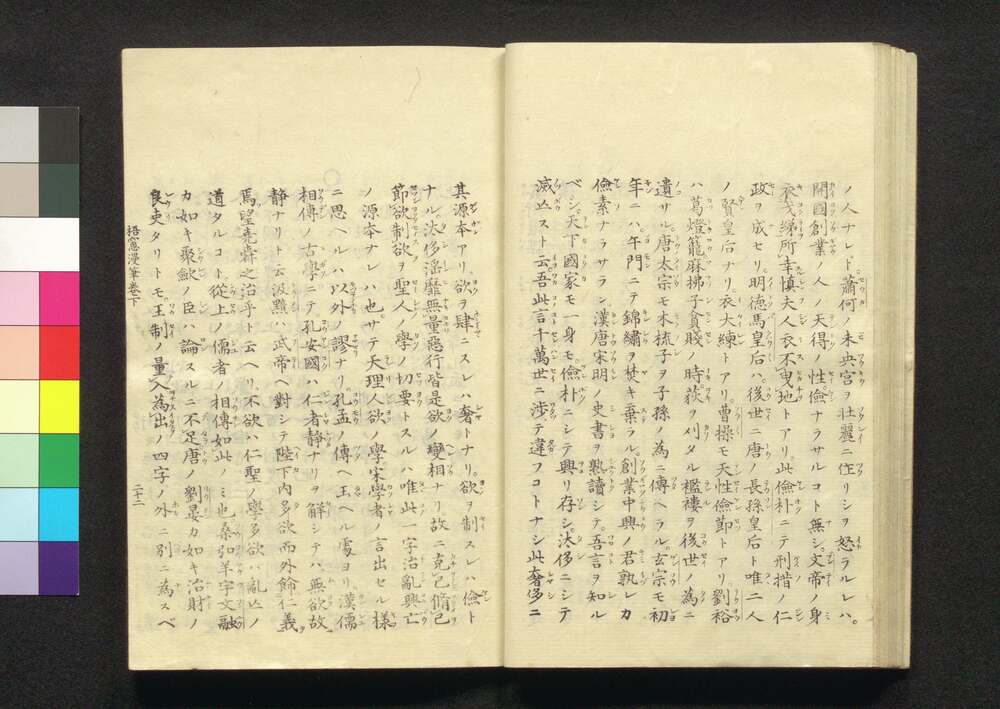 ノ人ナレド、蕭何ノ未央宮ヲ壮麗ニ作リシヲ怒ラルレハ。
開國創業ノ人ノ天得ノ性儉ナラサルコト無シ。文帝ノ身
衣弋綈所幸慎夫人衣不曳地トアリ。此儉朴ニテ刑措ノ仁
政ヲ成セリ。明德馬皇后ハ。後世ニ唐ノ長孫皇后ト唯二人
ノ賢皇后ナリ。衣大練トアリ。曹操モ天性儉節トアリ。劉裕
ハ葛燈籠麻拂子貧賤ノ時荻ヲ刈タル襤褸ヲ後世ノ為ニ
遺サル。唐太宗モ木梳子ヲ子孫ノ為ニ傳ヘラル。玄宗モ初
年ニハ午門ニテ錦繡ヲ焚キ棄ラル。創業中興ノ君孰レカ
儉素ナラサラン。漢唐宋明ノ史書ヲ熟讀シテ。吾言ヲ知ル
ベシ。天下國家モ一身モ儉朴ニシテ興リ存シ。汰侈ニシテ
滅亡スト云。吾此言千萬世ニ涉テ違フコトナシ。此奢侈ニ
其源本アリ。欲ヲ肆ニスレハ奢トナリ。欲ヲ制スレハ儉ト
ナル。汰侈淫靡無量惡行皆是欲ノ變相ナリ。故ニ克己脩己
節欲制欲ヲ聖人ノ學ノ切要トスルハ唯此一字治亂興亡
ノ源本ナレハ也。サテ天理人欲ノ學宋學者ノ言出セル樣
ニ思ヘルハ以外ノ謬ナリ。孔孟ノ傳ヘ玉ヘル處ヨリ漢儒
相傳ノ古學ニテ孔安國ハ仁者静ナリヲ解シテハ無欲故
静ナリト云。汲黯ハ武帝ヘ對シテ陛下内多欲而外餙仁義
焉望堯舜之治乎ト云ヘリ。不欲ハ仁聖ノ學多欲ハ亂亡ノ
道タルコト。從上ノ儒者ノ相傳如此ノミ也。桑弘羊宇文融
カ如キ聚斂ノ臣ハ論スルニ不足。唐ノ劉晏カ如キ治財ノ
良吏タリトモ王制ノ量入為出ノ四字ノ外ニ別ニ為スベ
梧窓漫筆巻下
二十二